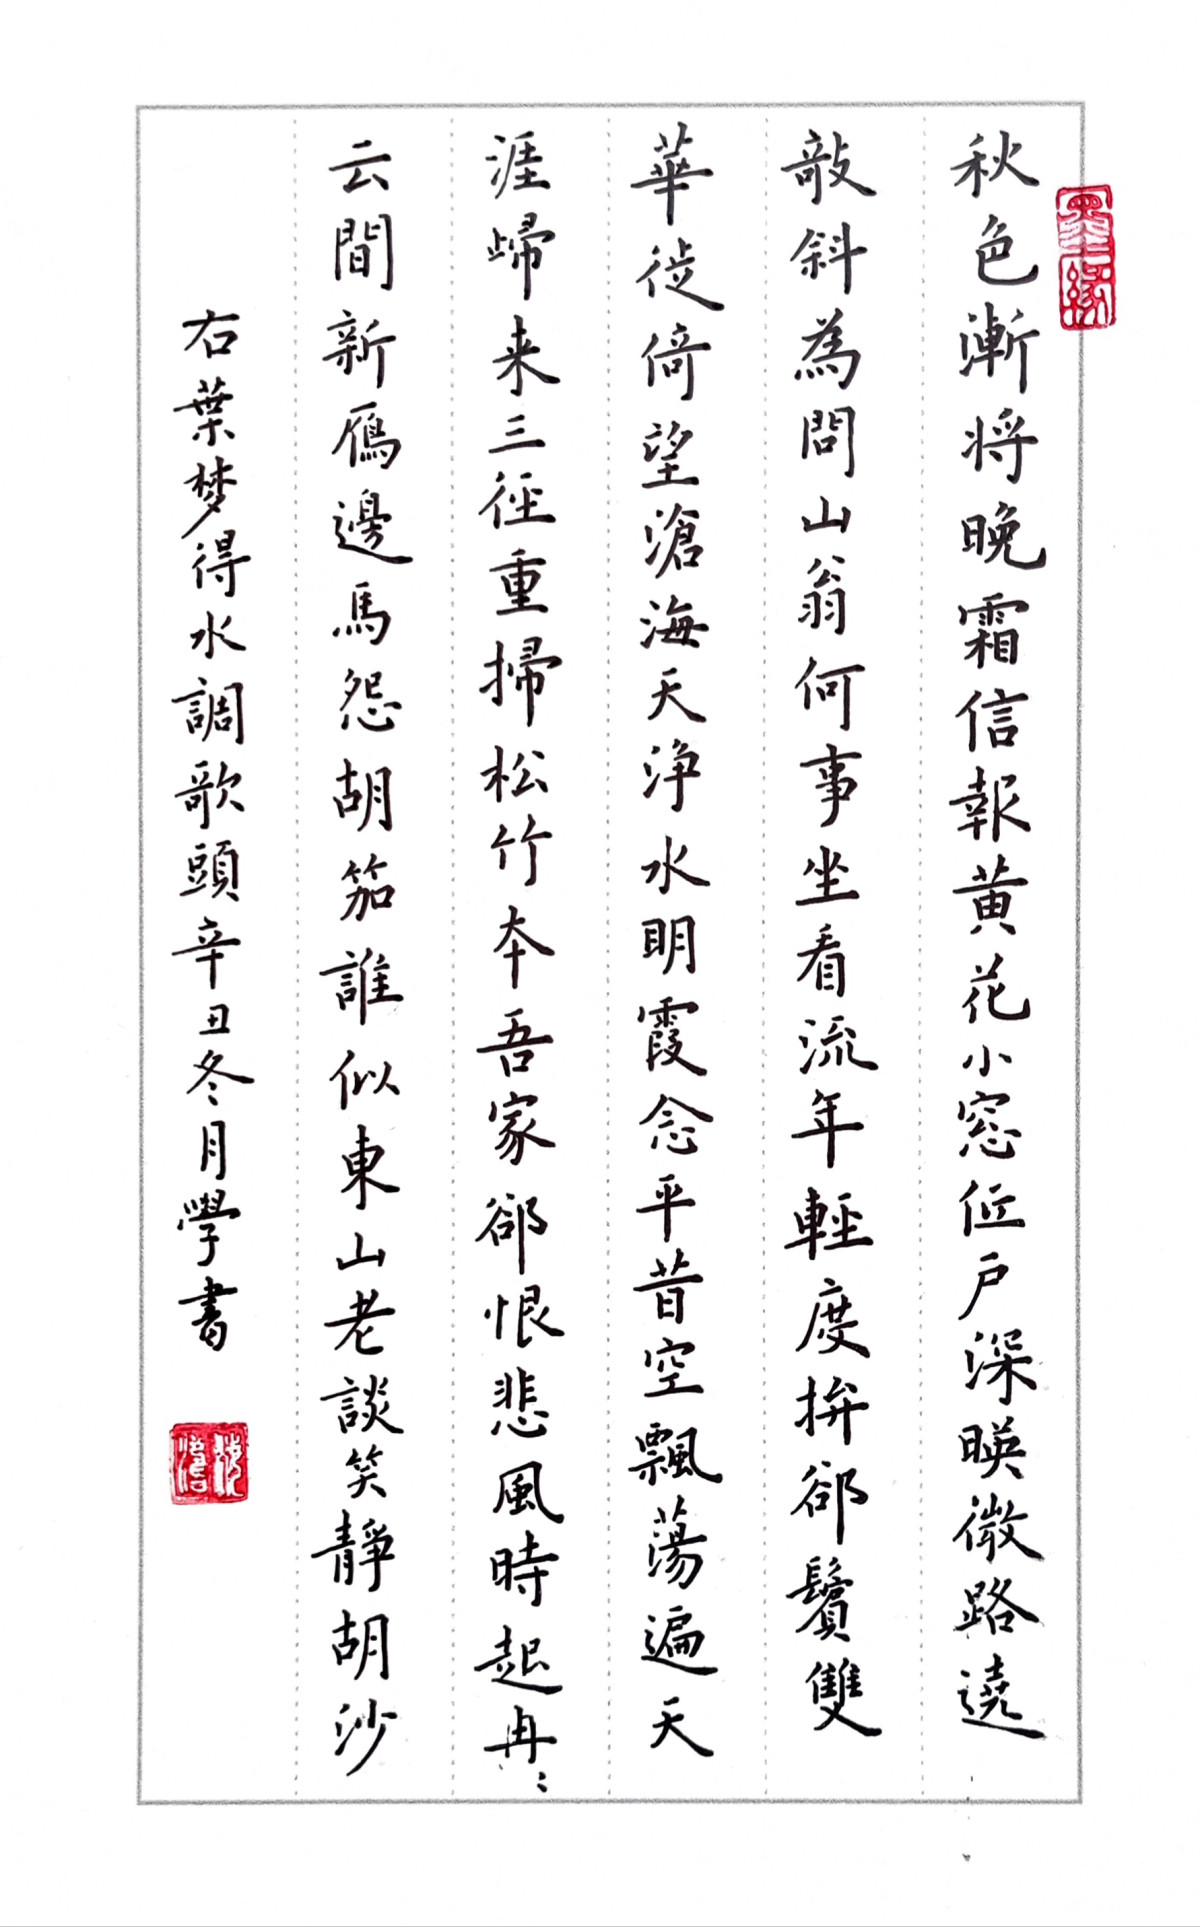 秋色漸将晚霜信報黄花小窓低户深暎微路遶
敧斜為問山翁何事坐看流年輕度拚郤鬢雙
華徙倚望滄海天浄水明霞念平昔空飄蕩遍天
涯歸来三徑重掃松竹本吾家郤恨悲風時起冉〻
云間新雁邊馬怨胡笳誰似東山老談笑靜胡沙
右葉梦得水調歌頭辛丑冬月學書
墨緣